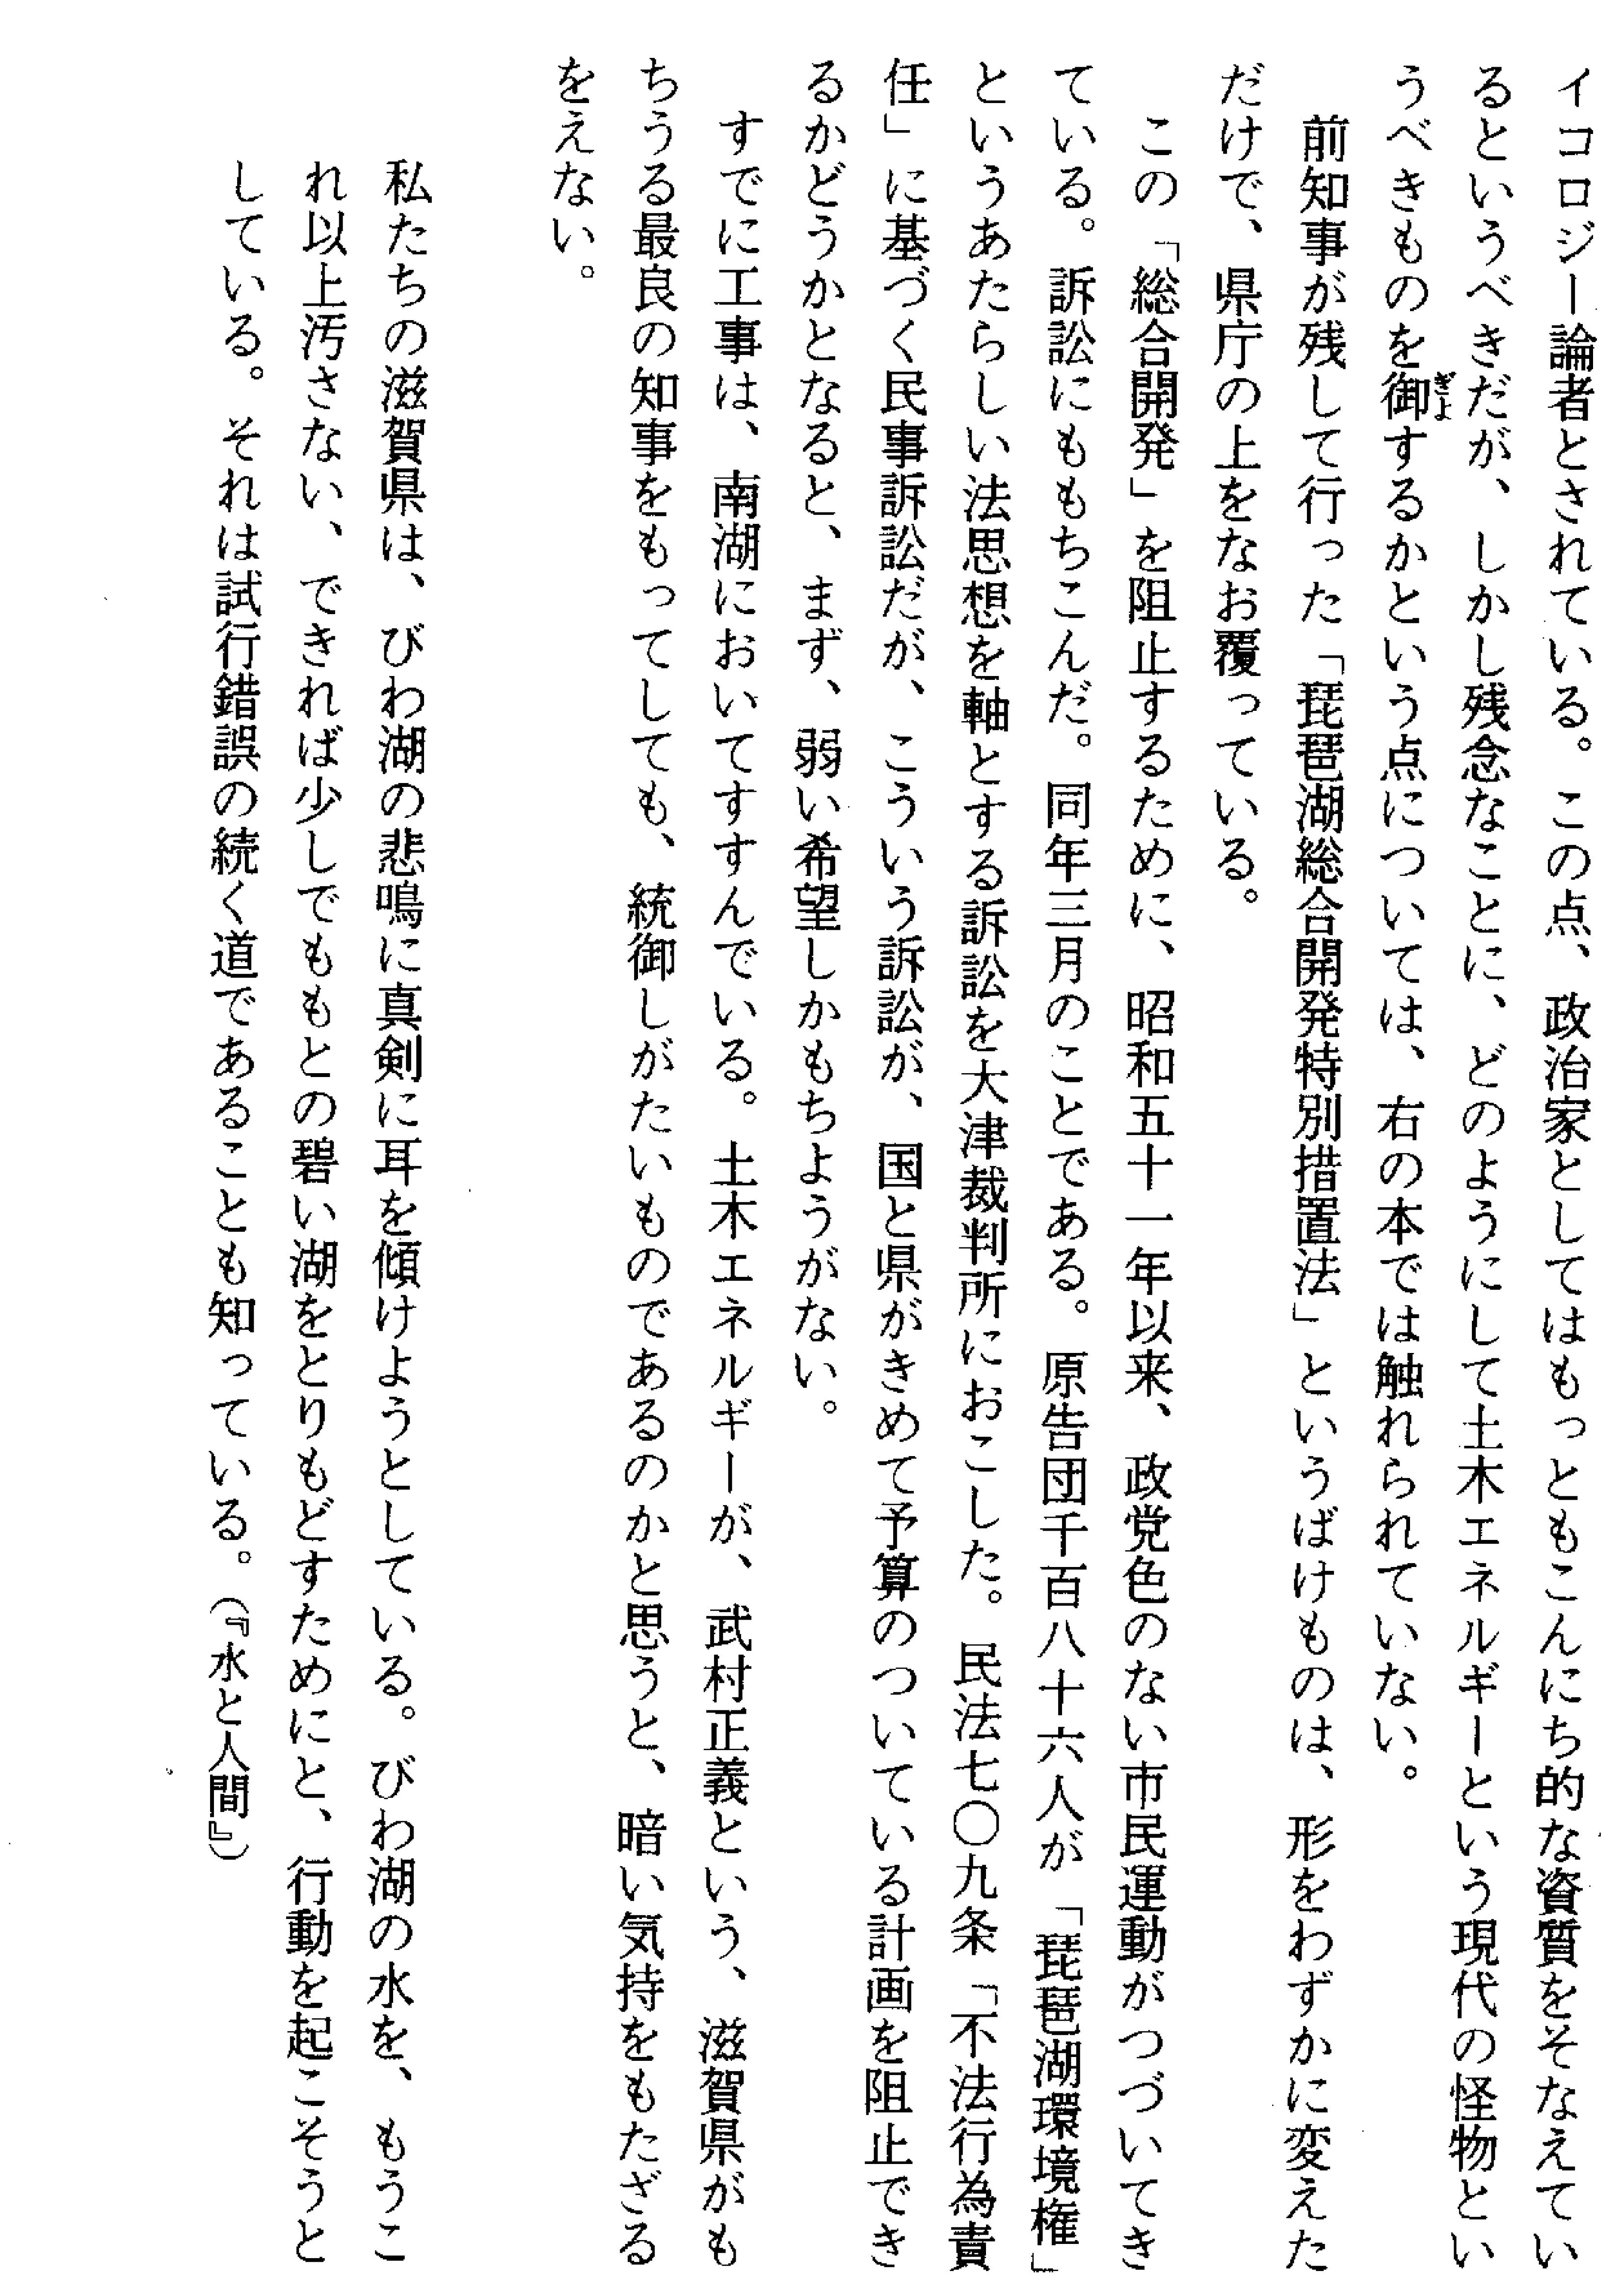 イコロジー論者とされている。この点、政治家としてはもっともこんにち的な資質をそなえてい
るというべきだが、しかし残念なことに、どのようにして土木エネルギーという現代の怪物とい
うべきものを御ぎょするかという点については、右の本では触れられていない。
前知事が残して行った「琵琶湖総合開発特別措置法」というばけものは、形をわずかに変えた
だけで、県庁の上をなお覆っている。
この「総合開発」を阻止するために、昭和五十一年以来、政党色のない市民運動がつづいてき
ている。訴訟にももちこんだ。同年三月のことである。原告団千百八十六人が「琵琶湖環境権」
というあたらしい法思想を軸とする訴訟を大津裁判所におこした。民法七〇九条「不法行為責
任」に基づく民事訴訟だが、こういう訴訟が、国と県がきめて予算のついている計画を阻止でき
るかどうかとなると、まず、弱い希望しかもちようがない。
すでに工事は、南湖においてすすんでいる。土木エネルギーが、武村正義という、滋賀県がも
ちうる最良の知事をもってしても、統御しがたいものであるのかと思うと、暗い気持をもたざる
をえない。
私たちの滋賀県は、びわ湖の悲鳴に真剣に耳を傾けようとしている。びわ湖の水を、もうこ
れ以上汚さない、できれば少しでももとの碧い湖をとりもどすためにと、行動を起こそうと
している。それは試行錯誤の続く道であることも知っている。（『水と人間』）